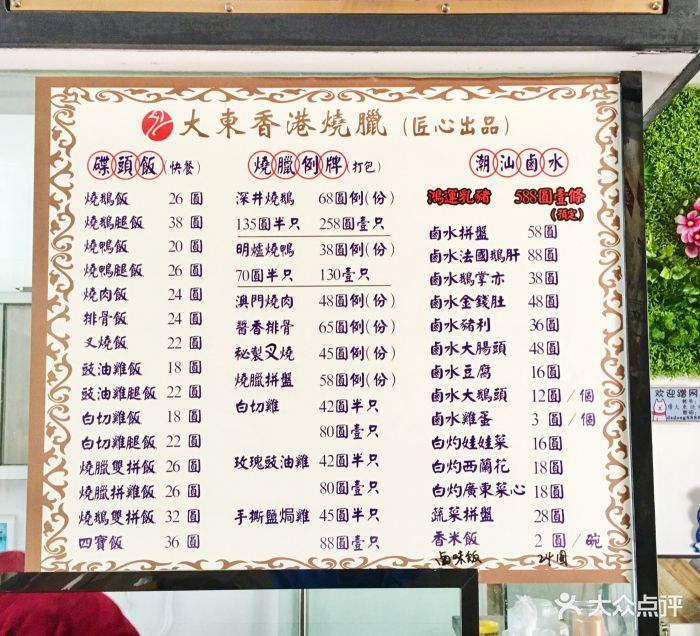 大東香港燒臘（匠心出品）
碟頭飯（快餐）
燒鵝飯 26 圓
燒鵝腿飯 38 圓
燒鴨飯 20 圓
燒鴨腿飯 26 圓
燒肉飯 24 圓
排骨飯 24 圓
叉燒飯 22 圓
豉油雞飯 18 圓
豉油雞腿飯 22 圓
白切雞飯 18 圓
白切雞腿飯 22 圓
燒臘雙拼飯 26 圓
燒臘拼雞飯 26 圓
燒鵝雙拼飯 32 圓
四寶飯 36 圓
燒臘例牌（打包）
深井燒鵝 68圓例(份)
135圓半只 258圓壹只
明爐燒鴨 38圓例(份)
70圓半只 130壹只
澳門燒肉 48圓例(份)
醬香排骨 65圓例(份)
秘製叉燒 45圓例(份)
燒臘拼盤 58圓例(份)
白切雞 42圓半只
80圓壹只
玫瑰豉油雞 42圓半只
80圓壹只
手撕鹽焗雞 45圓半只
88圓壹只
潮汕鹵水
鴻運乳豬 588圓壹條
(預定)
鹵水拼盤 58圓
鹵水法國鵝肝 88圓
鹵水鵝掌亦 38圓
鹵水金錢肚 48圓
鹵水豬利 36圓
鹵水大腸頭 48圓
鹵水豆腐 16圓
鹵水大鵝頭 12圓/個
鹵水雞蛋 3圓/個
白灼娃娃菜 16圓
白灼西蘭花 18圓
白灼廣東菜心 18圓
蔬菜拼盤 28圓
香米飯 2圓/碗
鹵味飯 24圓
欢迎蹭网
大众点评